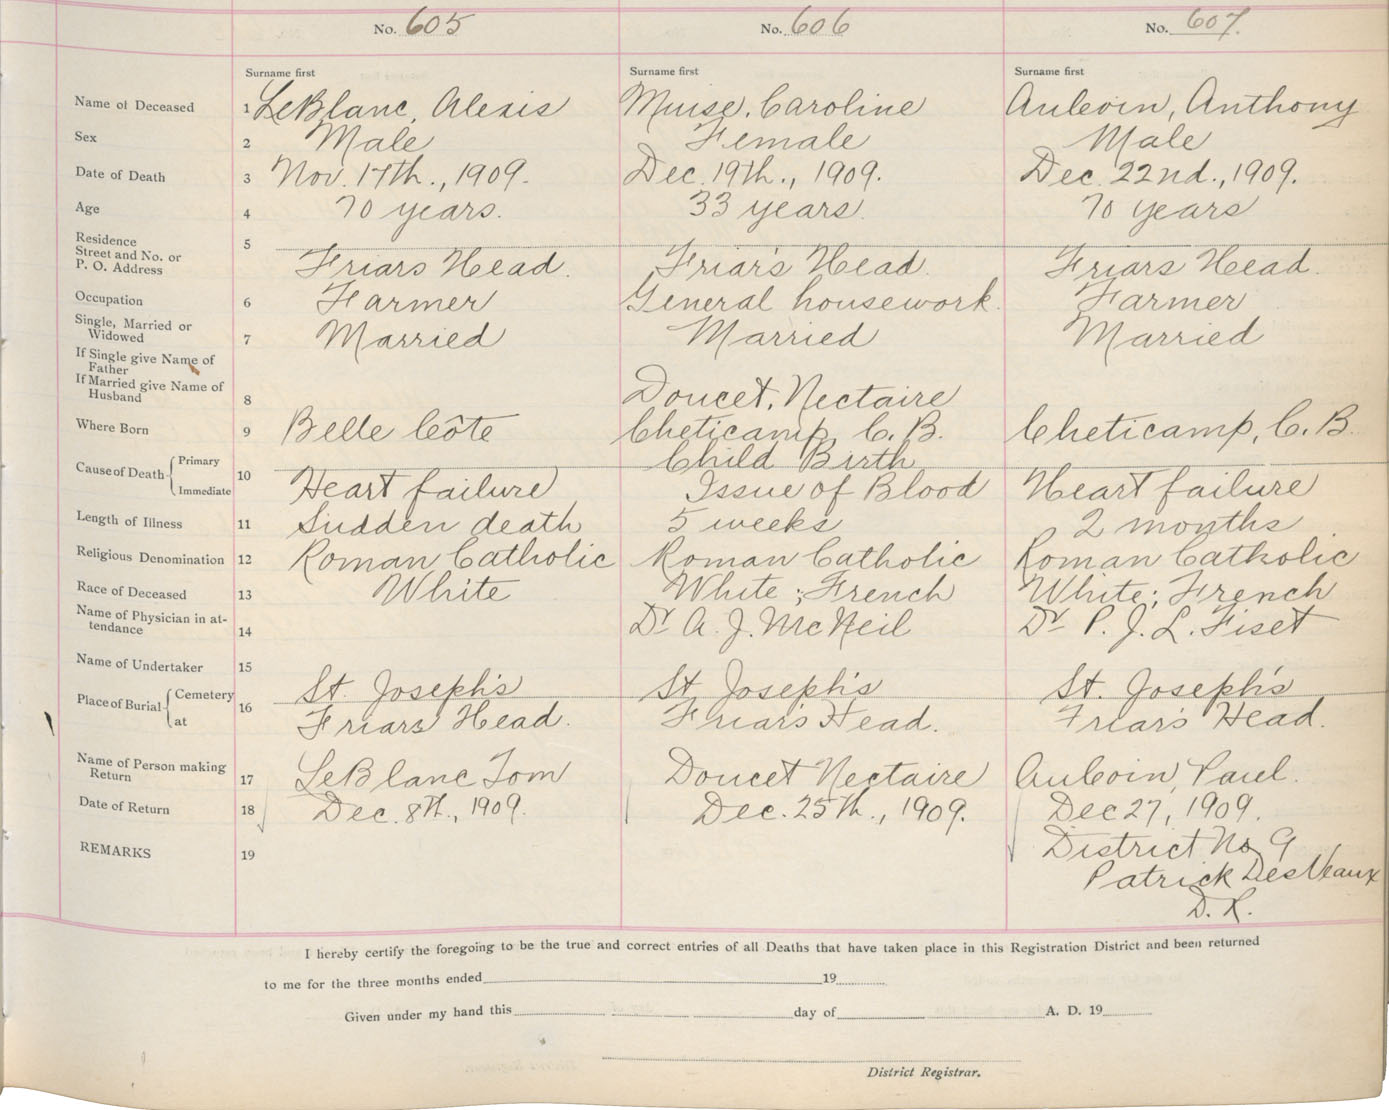 No. 605 No. 606 No. 607.
Surname first Surname first Surname first
Name of Deceased 1 LeBlanc, Alexis Muise, Caroline Aulcoin, Anthony
Sex 2 Male Female Male
Date of Death 3 Nov. 17th., 1909. Dec. 19th., 1909. Dec. 22nd., 1909.
Age 4 70 years. 33 years. 70 years
Residence 5
Street and No. or
P. O. Address Friars Head. Friar's Head. Friars Head.
Occupation 6 Farmer General housework. Farmer
Single, Married or
Widowed 7 Married Married Married
If Single give Name of
Father
If Married give Name of
Husband 8 Doucet, Nectaire
Where Born 9 Belle Côte Cheticamp, C. B. Cheticamp, C. B.
Cause of Death Primary Child Birth
Immediate 10 Heart failure Issue of Blood Heart failure
Length of Illness 11 Sudden death 5 weeks 2 months
Religious Denomination 12 Roman Catholic Roman Catholic Roman Catholic
Race of Deceased 13 White White ; French White ; French
Name of Physician in at-
tendance 14 Dr A. J. McNeil Dr P. J. L. Fiset
Name of Undertaker 15
Place of Burial Cemetery 16 St. Joseph's St. Joseph's St. Joseph's
at Friars Head. Friar's Head. Friar's Head.
Name of Person making
Return 17 LeBlanc Tom Doucet Nectaire AuCoin, Paul.
Date of Return 18 Dec. 8th., 1909. Dec. 25th., 1909. Dec 27, 1909.
REMARKS 19 District No 9
Patrick DesVeaux
D. R.
I hereby certify the foregoing to be the true and correct entries of all Deaths that have taken place in this Registration District and been returned
to me for the three months ended 19
Given under my hand this day of A. D. 19
District Registrar.